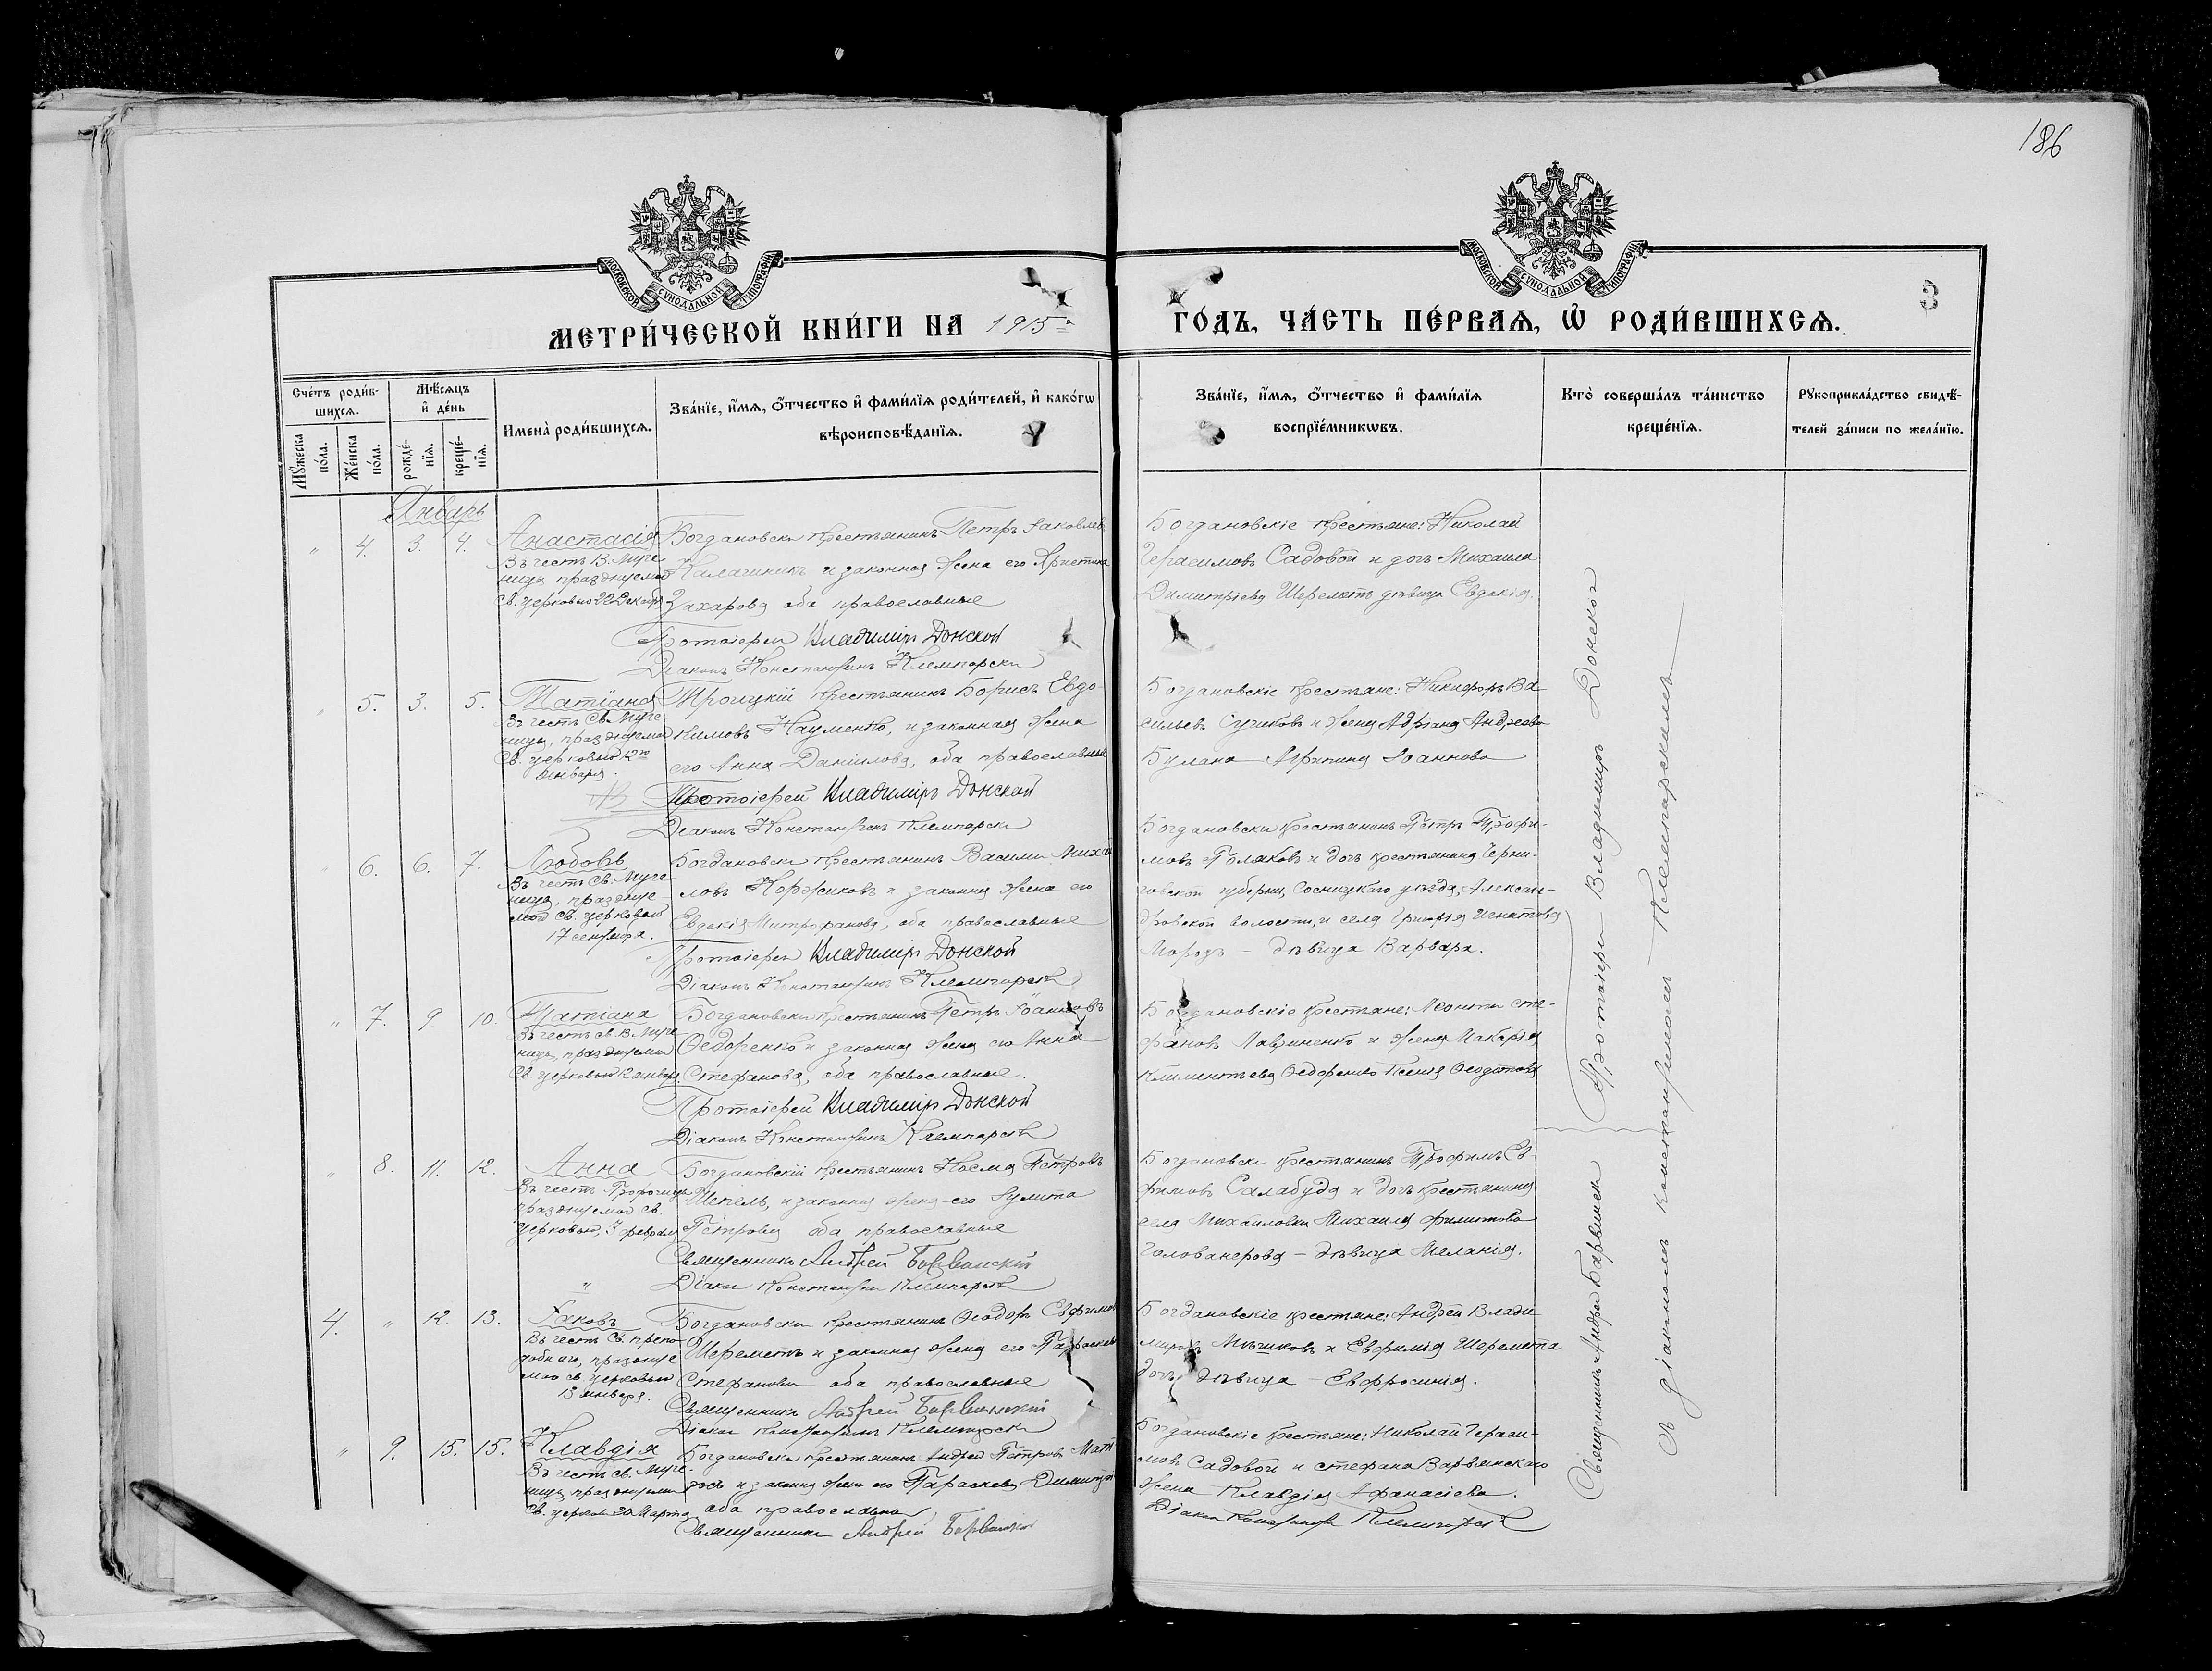 186
МОСКОВСКОЙ СѴНОДАЛЬНОЙ ТИПОГРАФІИ
МОСКОВСКОЙ СѴНОДАЛЬНОЙ ТИПОГРАФІИ
3
МЕТРИ́ЧЕСКОЙ КНИ́ГИ НА 1915
ГО́ДЪ, ЧА́СТЬ ПЕ́РВАѦ, Ѡ҆ РОДИ́ВШИХСѦ.
Сче́тъ роди́в-
шихсѧ.
Мꙋ́жеска
по́ла.
Же́нска
по́ла.
Мѣ́сѧцъ
и҆ де́нь
рожде́-
нїѧ.
креще́-
нїѧ.
Имена̀ роди́вшихсѧ.
Зва́нїе, и҆́мѧ, ѻ҆́тчество и҆ фами́лїѧ роди́телей, и҆ како́гѡ
вѣроисповѣ́данїѧ.
Зва́нїе, и҆́мѧ, ѻ҆́тчество и҆ фами́лїѧ
воспрїе́мникѡвъ.
Кто̀ соверша́лъ та́инство
креще́нїѧ.
Рꙋкоприкла́дство свидѣ́-
телей за́писи по жела́нїю.
Январь
" 4. 3. 4.
Анастасія
Въ честь В. Муче
ницы празднуемой
Св. Церковью 22 Декабр
Богдановски крестьянинъ Петръ Іаковлев
Калашникъ и законная жена его Христина
Захарова оба православные
Протоіерей Владиміръ Донской
Діаконъ Константинъ Клемпарски
Богдановскіе крестьяне: Николай
Герасимовъ Садовой и дочь Михаила
Димитріева Шереметъ дѣвица Евдокія.
" 5. 3. 5.
Татіана
Въ честь Св. Муче
ницы, празднуемой
Св. Церковью 12го
Января.
Троицкій крестьянинъ Борисъ Евдо-
кимовъ Науменко, и законная жена
его Анна Даніилова, оба православные
Протоіерей Владиміръ Донской
Діаконъ Константинъ Клемпарски
Богдановскіе крестьяне: Никифоръ Ва
сильевъ и жена Адріана Андреева
Булана Агрипина Іоаннова
" 6. 6. 7.
Любовь
Въ честь Св. Муче
ницы, праздnуе
мой Св. Церковью
17 сентября.
Богдановски крестьянинъ Василий Михаи
ловъ Коржиковъ и законная жена его
Евдокія Митрофанова, оба православные
Протоіерей Владиміръ Донской
Діаконъ Константинъ Клемпарскій
Богдановски крестьянинъ Петръ Трофи-
мовъ Поляковъ и дочь крестьянина Черни-
говской губерніи, Сосницкаго уѣзда, Алексан-
дровской волости, и села Игнатова
Морозъ – дѣвица Варвара.
" 7. 9 10.
Татіана
Въ честь св. В. Муче
ницы, празднуемой
Св. Церковью 12 января
Богдановски крестьянинъ Петръ Іоанновъ
Ѳедоренко и законная жена его Анна
Стефанова, оба православные.
Протоіерей Владиміръ Донской
Діаконъ Константинъ Клемпарскій
Богдановскіе крестьяне: Леонтій Сте-
фановъ Лавриненко и жена Макарія
Климентьева Ѳедоренко Ксенія Ѳеодотова
" 8. 11. 12.
Анна
Въ честь Пророчицы
празднуемой Св.
Церковью, 3 февраля
Богдановскій крестьянинъ Косма Петровъ
Шепель, и законная жена его Іулита
Петрова оба православные
Священникъ Андрей Барвинскій
Діаконъ Константинъ Клемпарскій
Богдановски крестьянинъ Трофимъ Ев
фимовъ Салабуда и дочь крестьянина
села Михайловки Михаила Филиппова
– дѣвица Меланія.
4. " 12. 13.
Іаковъ
Въ честь Св. препо
добнаго, праздnуе
маго св. Церковью
13 января.
Богдановски крестьянинъ Ѳеодоръ Евфимов
Шереметъ и законная жена его Параскева
Стефанова оба православные
Священникъ Андрей Барвинскій
Діаконъ Константинъ Клемпарски
Богдановскіе крестьяне: Андрей Влади-
мировъ Мѣшковъ и Евфимія Шеремета
дочь дѣвица – Евфросинія.
" 9. 15. 15.
Клавдія
Въ честь св. Муче-
ницы, празднуемой
Св. Церков 20 Марта
Богдановски крестьянинъ Андрей Петровъ
и законная жена его Параскева Димитр
оба православные
Священникъ Андрей Барвинскій
Богдановскіе крестьяне: Николай Гераси-
мовъ Садовой и Стефана Варвянскаго
жена Клавдія Афанасіева.
Діаконъ Константинъ Клемпарскій
Протоіерей Владиміръ Донской
Священникъ Андрей Барвинскій
съ діакономъ Константиномъ Клемпарскимъ